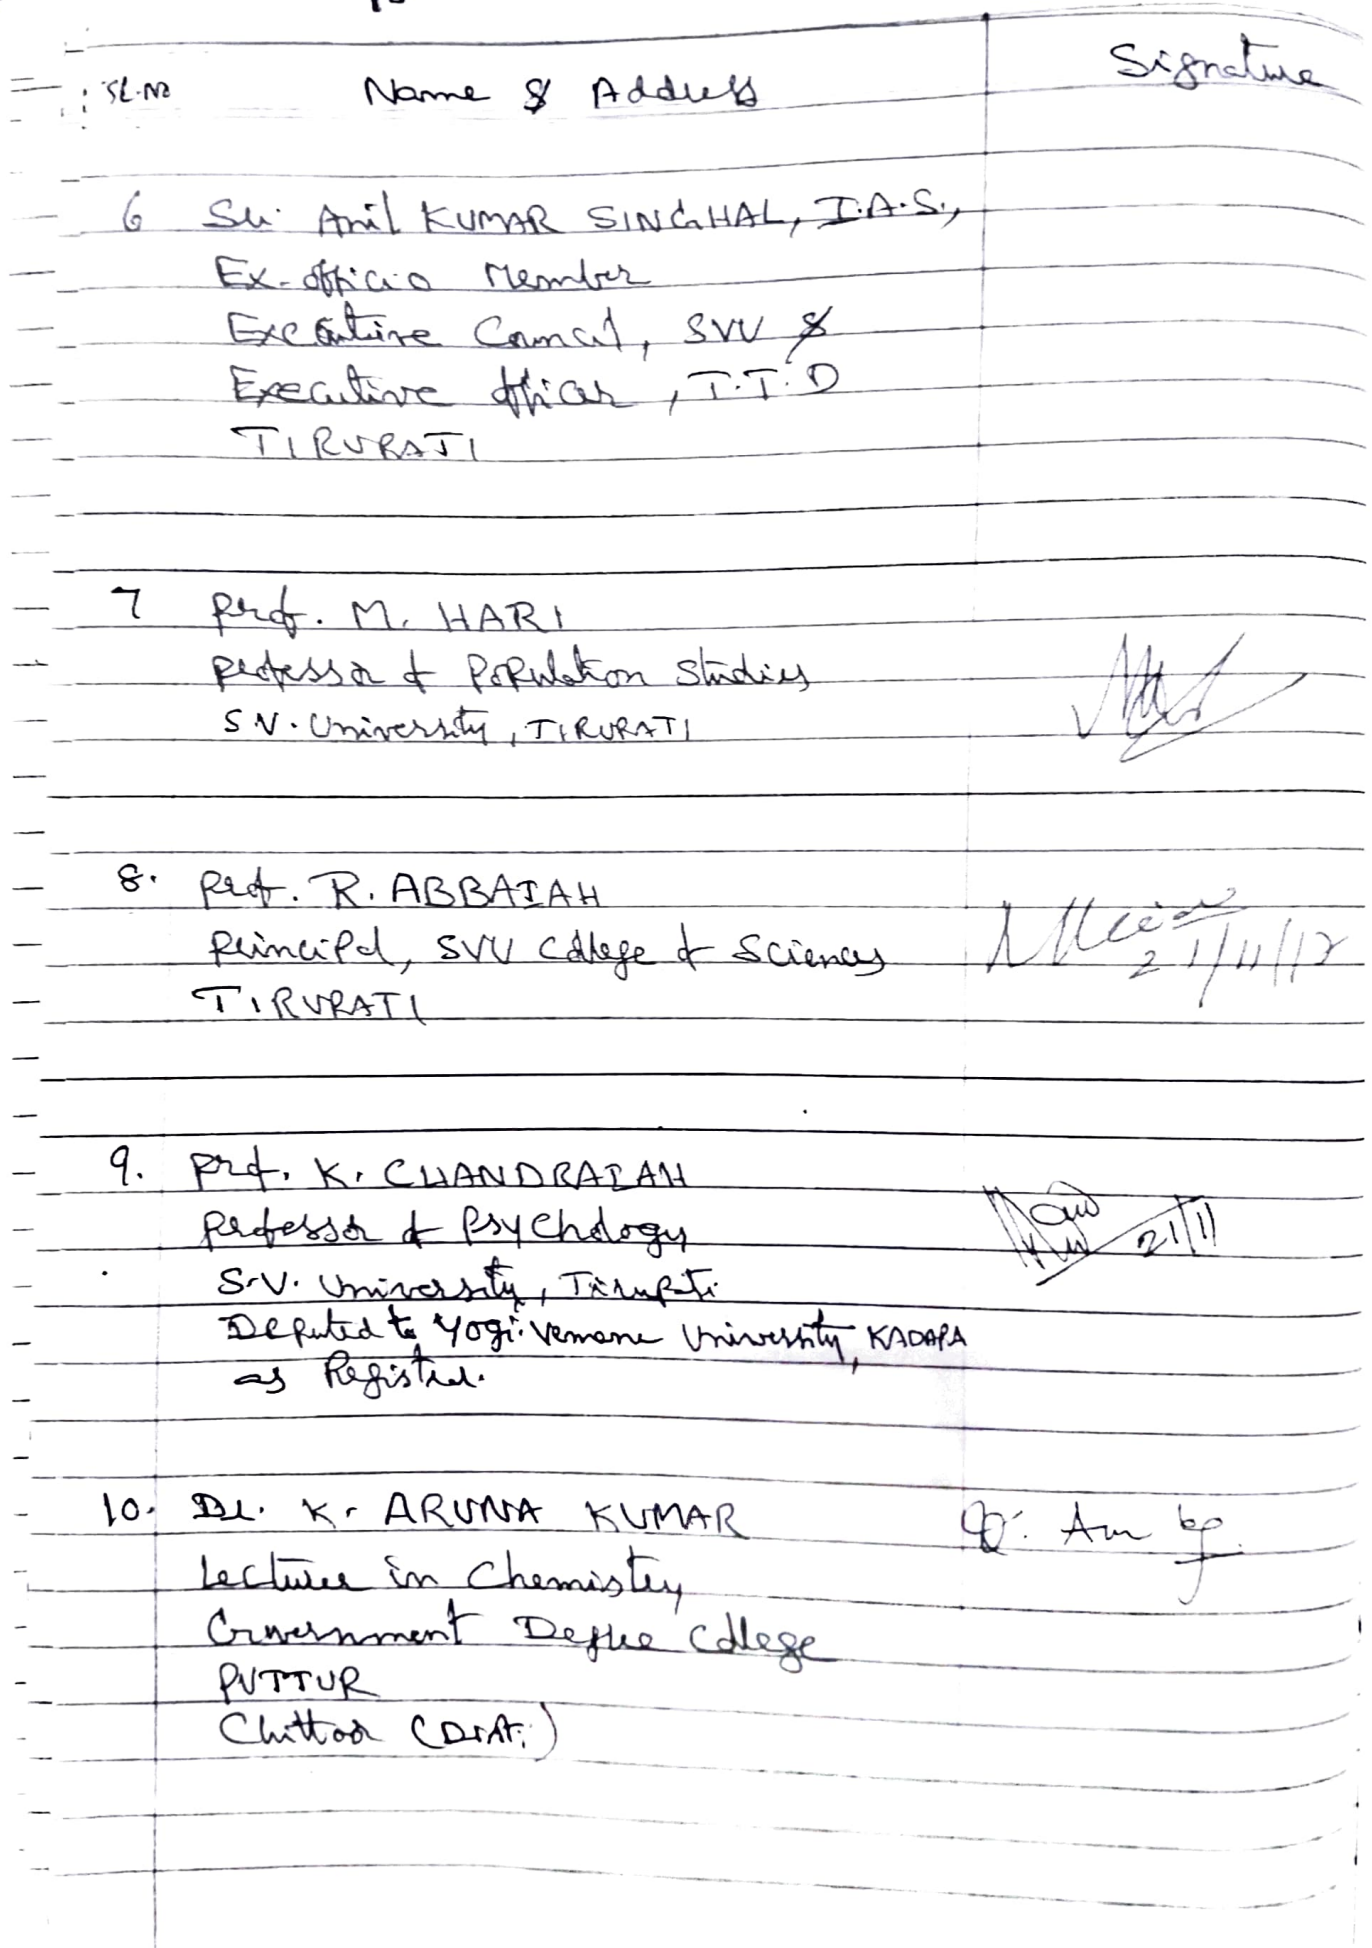 SL.No Name & Address Signature
6 Sri. Anil KUMAR SINGHAL, I.A.S.,
Ex-officio Member
Executive Council, SVU &
Executive Officer, T.T.D
TIRUPATI
7 Prof. M. HARI
Professor of Population Studies
S.V. University, TIRUPATI
8. Prof. R. ABBAIAH
Principal, SVU College of Sciences
21/11/17
TIRUPATI
9. Prof. K. CHANDRAIAH
Professor of Psychology 21/11
S.V. University, Tirupati
Deputed to Yogi Vemana University, KADAPA
as Registrar.
10. Dr. K. ARUNA KUMAR
Lecturer in Chemistry
Government Degree College
PUTTUR
Chittoor (Dist.)